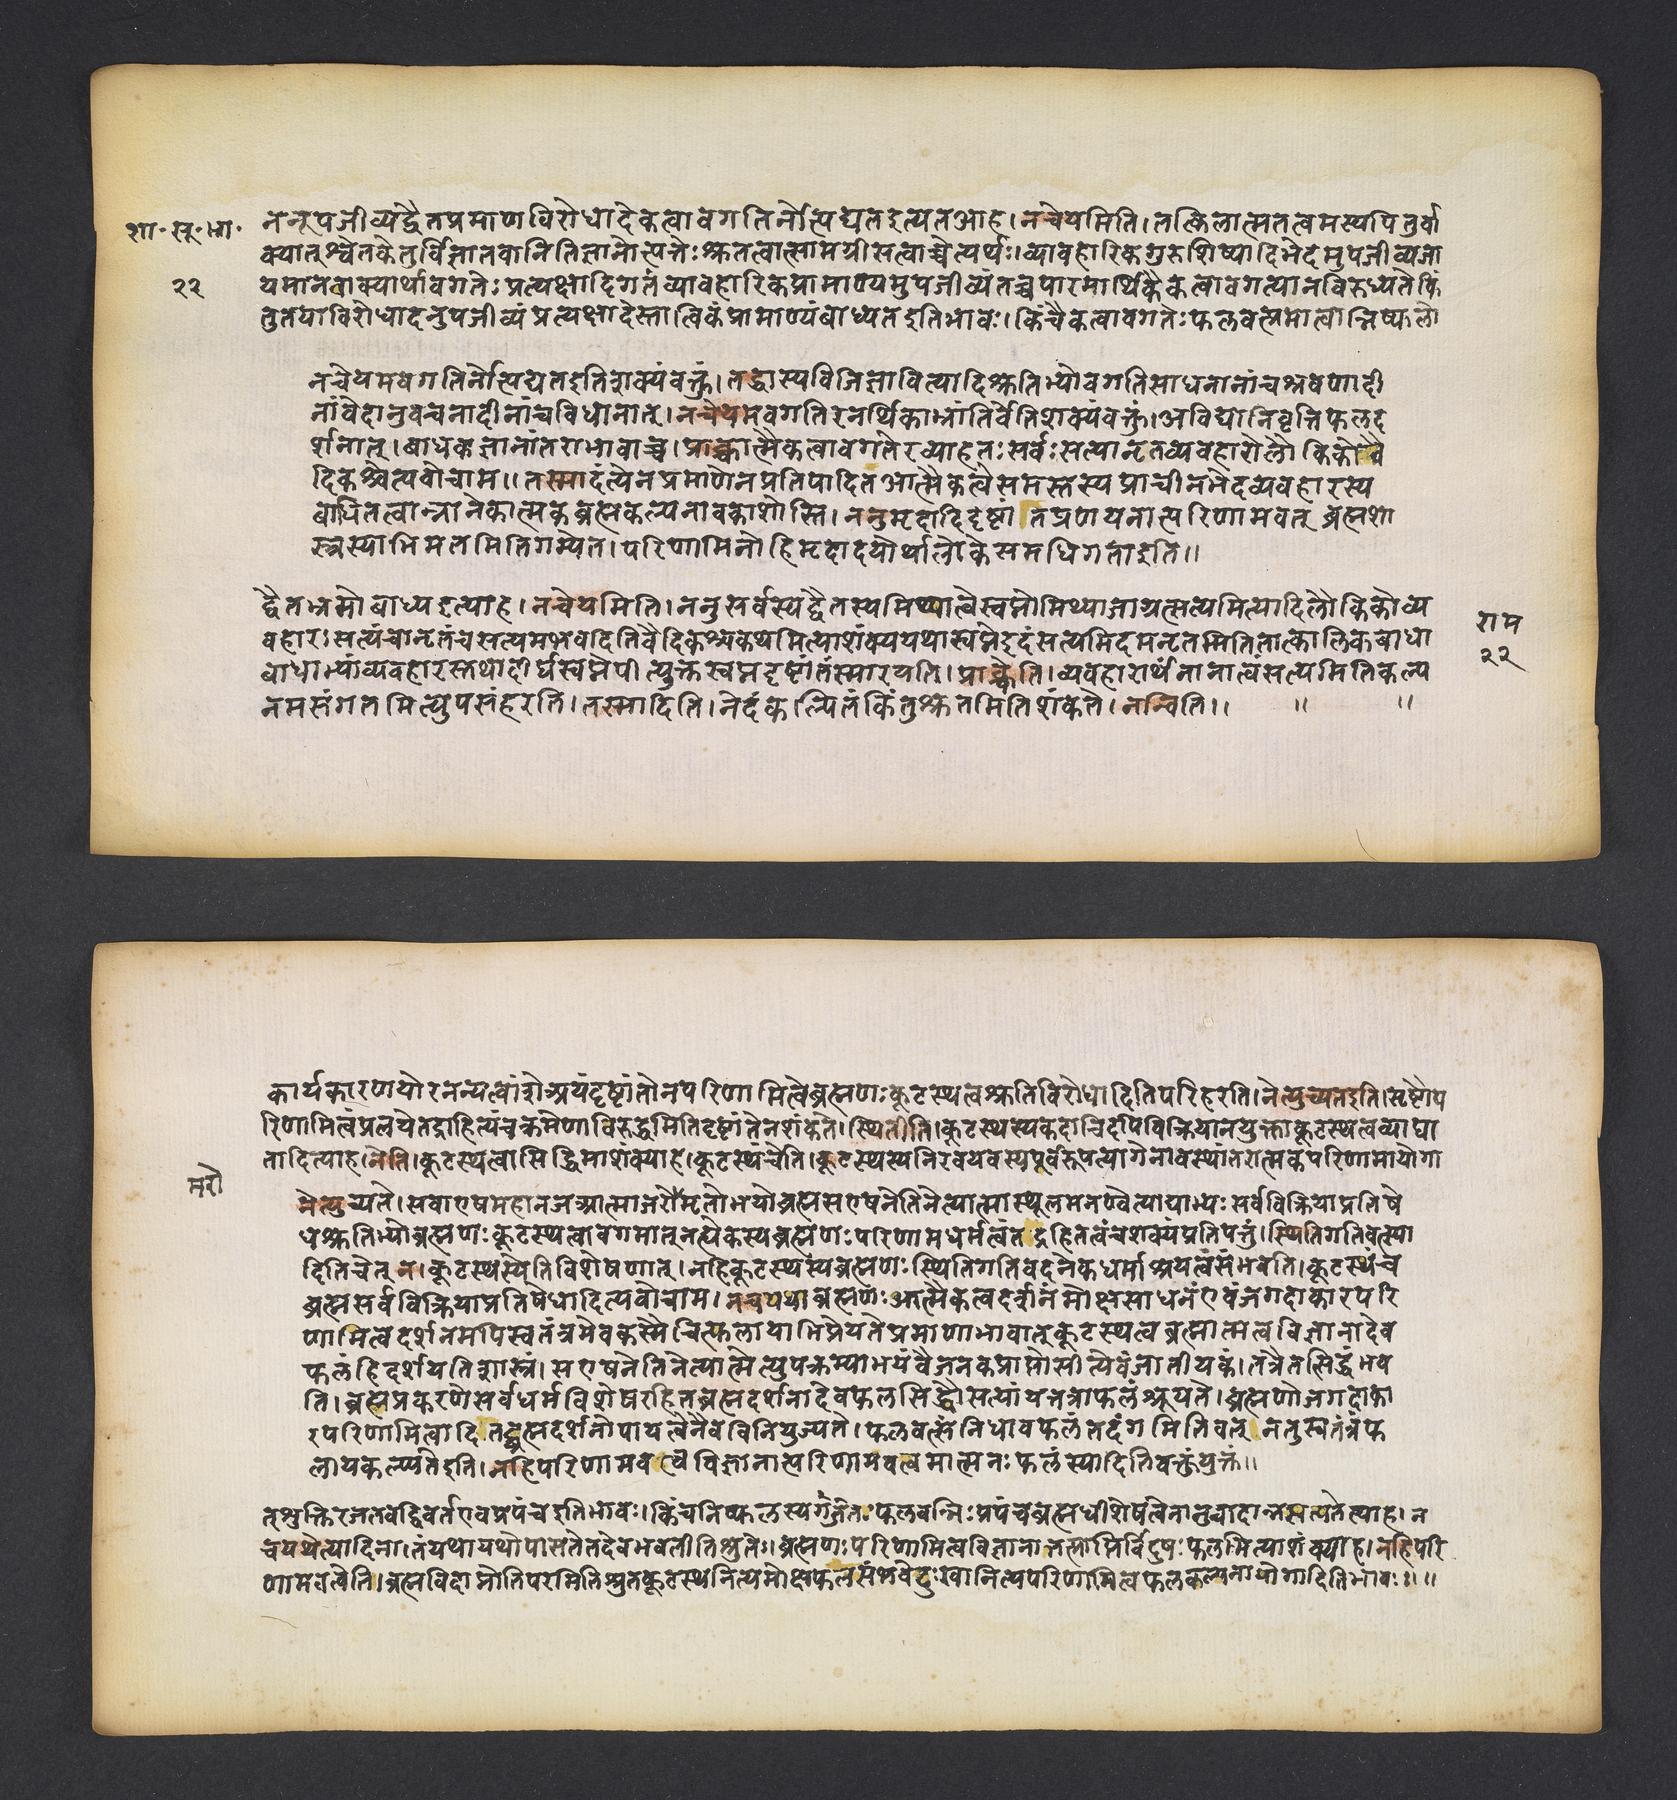 शा॰सू॰भा॰
२२
ननूपजीव्यद्वैतप्रमाणविरोधादेकत्वावगतिर्नोत्पद्येतइत्यतआह। नचेयमिति। तत्किलात्मतत्वमस्यपितुर्वा
क्यात्श्वेतकेतुर्विज्ञातवानितिज्ञानोत्पत्तेःश्रुतत्वात्सामग्रीसत्वाच्चेत्यर्थः। व्यावहारिकगुरुशिष्यादिभेदमुपजीव्यजा
यमानवाक्यार्थावगतेः प्रत्यक्षादिगतंव्यावहारिकंप्रामाण्यमुपजीव्यंतच्चपारमार्थिकैकत्वावगत्यानविरुध्यतेकिं
तुतयाविरोधादनुपजीव्यं प्रत्यक्षादेस्तात्विकंप्रामाण्यंबाध्यतइतिभावः। किंचैकत्वावगतेः फलवत्प्रमात्वान्निष्फलो
नचेयमवगतिर्नोत्पद्यतइतिशक्यंवक्तुं। तद्धास्यविजिज्ञावित्यादिश्रुतिभ्योवगतिसाधनानांचश्रवणादी
नांवेदानुवचनादीनांचविधानात्। नचेयमवगतिरनर्थिकाभ्रांतिर्वेतिशक्यंवक्तुं। अविद्यानिवृत्तिफलद
र्शनात्। बाधकज्ञानांतराभावाच्च। प्राक्चात्मैकत्वावगतेरव्याहतः सर्वः सत्यानृतव्यवहारोलौकिकोवै
दिकश्चेत्यवोचाम॥ तस्मादंत्येनप्रमाणेनप्रतिपादितआत्मैकत्वेसमस्तस्यप्राचीनभेदव्यवहारस्य
बाधितत्वान्नानेकात्मकब्रह्मकल्पनावकाशोस्ति। ननुमृदादिदृष्टांतप्रणयनात्परिणामवत् ब्रह्मशा
स्त्रस्याभिमतमितिगम्यते। परिणामिनोहिमृदादयोर्थालोकेसमधिगताइति॥
द्वैतभ्रमोबाध्यइत्याह। नचेयमिति। ननुसर्वस्यद्वैतस्यमिथ्यात्वेस्वप्नोमिथ्याजाग्रत्सत्यमित्यादिलौकिकोव्य
वहारः सत्यंचानृतंचसत्यमभवदितिवैदिकश्चकथमित्याशंक्ययथास्वप्नेइदंसत्यमिदमनृतमितितात्कालिकबाधा
बाधाभ्यांव्यवहारस्तथादीर्घस्वप्नेपीत्युक्तस्वप्नदृष्टांतंस्मारयति। प्राक्चेति। व्यवहारार्थंनानात्वंसत्यमितिकल्प
नमसंगतमित्युपसंहरति। तस्मादिति। नेदंकल्पितंकिंतुश्रुतमितिशंकते। नन्विति॥ ॥ ॥
राम
२२
कार्यकारणयोरनन्यत्वांशेअयंदृष्टांतोनपरिणामित्वेब्रह्मणः कूटस्थत्वश्रुतिविरोधादितिपरिहरति। नेत्युच्यतइति। सृष्टौप
रिणामित्वंप्रलयेतद्राहित्यंचक्रमेणाविरुद्धमितिदृष्टांतेनशंकते। स्थितीति। कूटस्थस्यकदाचिदपिविक्रियानयुक्ताकूटस्थत्वव्याघा
तादित्याह। नेति। कूटस्थत्वासिद्धिमाशंक्याह। कूटस्थंचेति। कूटस्थस्यनिरवयवस्यपूर्वरूपत्यागेनावस्थांतरात्मकपरिणामायोगा
मरो
नेत्युच्यते। सवाएषमहानजआत्माजरोमृतोभयोब्रह्मसएषनेतिनेत्यात्मास्थूलमनण्वेत्याद्याभ्यः सर्वविक्रियाप्रतिषे
धश्रुतिभ्योब्रह्मणः कूटस्थत्वावगमात् नत्येकस्यब्रह्मणः परिणामधर्मत्वंतद्रहितत्वंचशक्यंप्रतिपत्तुं। स्थितिगतिवत्स्या
दितिचेत् न। कूटस्थस्येतिविशेषणात्। नहिकूटस्थस्यब्रह्मणः स्थितिगतिवदनेकधर्माश्रयत्वंसंभवति। कूटस्थंच
ब्रह्मसर्वविक्रियाप्रतिषेधादित्यवोचाम। नचयथाब्रह्मणः आत्मैकत्वदर्शनंमोक्षसाधनंएवंजगदाकारपरि
णामित्वदर्शनमपिस्वतंत्रमेवकस्मैचित्फलायाभिप्रेयतेप्रमाणाभावात् कूटस्थत्वब्रह्मात्मत्वविज्ञानादेव
फलंहिदर्शयतिशास्त्रं। सएषनेतिनेत्यात्मेत्युपक्रम्याभयंवैजनकप्राप्तोसीत्येवंजातीयकं। तत्रैतत्सिद्धंभव
ति। ब्रह्मप्रकरणेसर्वधर्मविशेषरहितब्रह्मदर्शनादेवफलसिद्धौसत्यांयत्तत्राफलंश्रूयते। ब्रह्मणोजगदाका
रपरिणामित्वादितद्ब्रह्मदर्शनोपायत्वेनैवविनियुज्यते। फलवत्संनिधावफलंतदंगमितिवत् नतुस्वतंत्रंफ
लायकल्प्यतइति। नहिपरिणामवत्वेविज्ञानात्परिणामवत्वमात्मनः फलंस्यादितिवक्तुंयुक्तं॥
त्शुक्तिरजतवद्विवर्तएवप्रपंचइतिभावः। किंचनिष्फलस्यश्रुतेः फलवन्निः प्रपंचब्रह्मधीशेषत्वेनानुवादान्नसत्यतेत्याह। न
चयथेत्यादिना। तंयथायथोपासतेतदेवभवतीतिश्रुतेः। ब्रह्मणः परिणामित्वविज्ञानात्तत्प्राप्तिर्विदुषः फलमित्याशंक्याह। नहिपरि
णामवत्वेति। ब्रह्मविदाप्नोतिपरमितिश्रुतकूटस्थनित्यमोक्षफलसंभवेदुःखानित्यपरिणामित्वफलकल्पनायोगादितिभावः॥ ॥